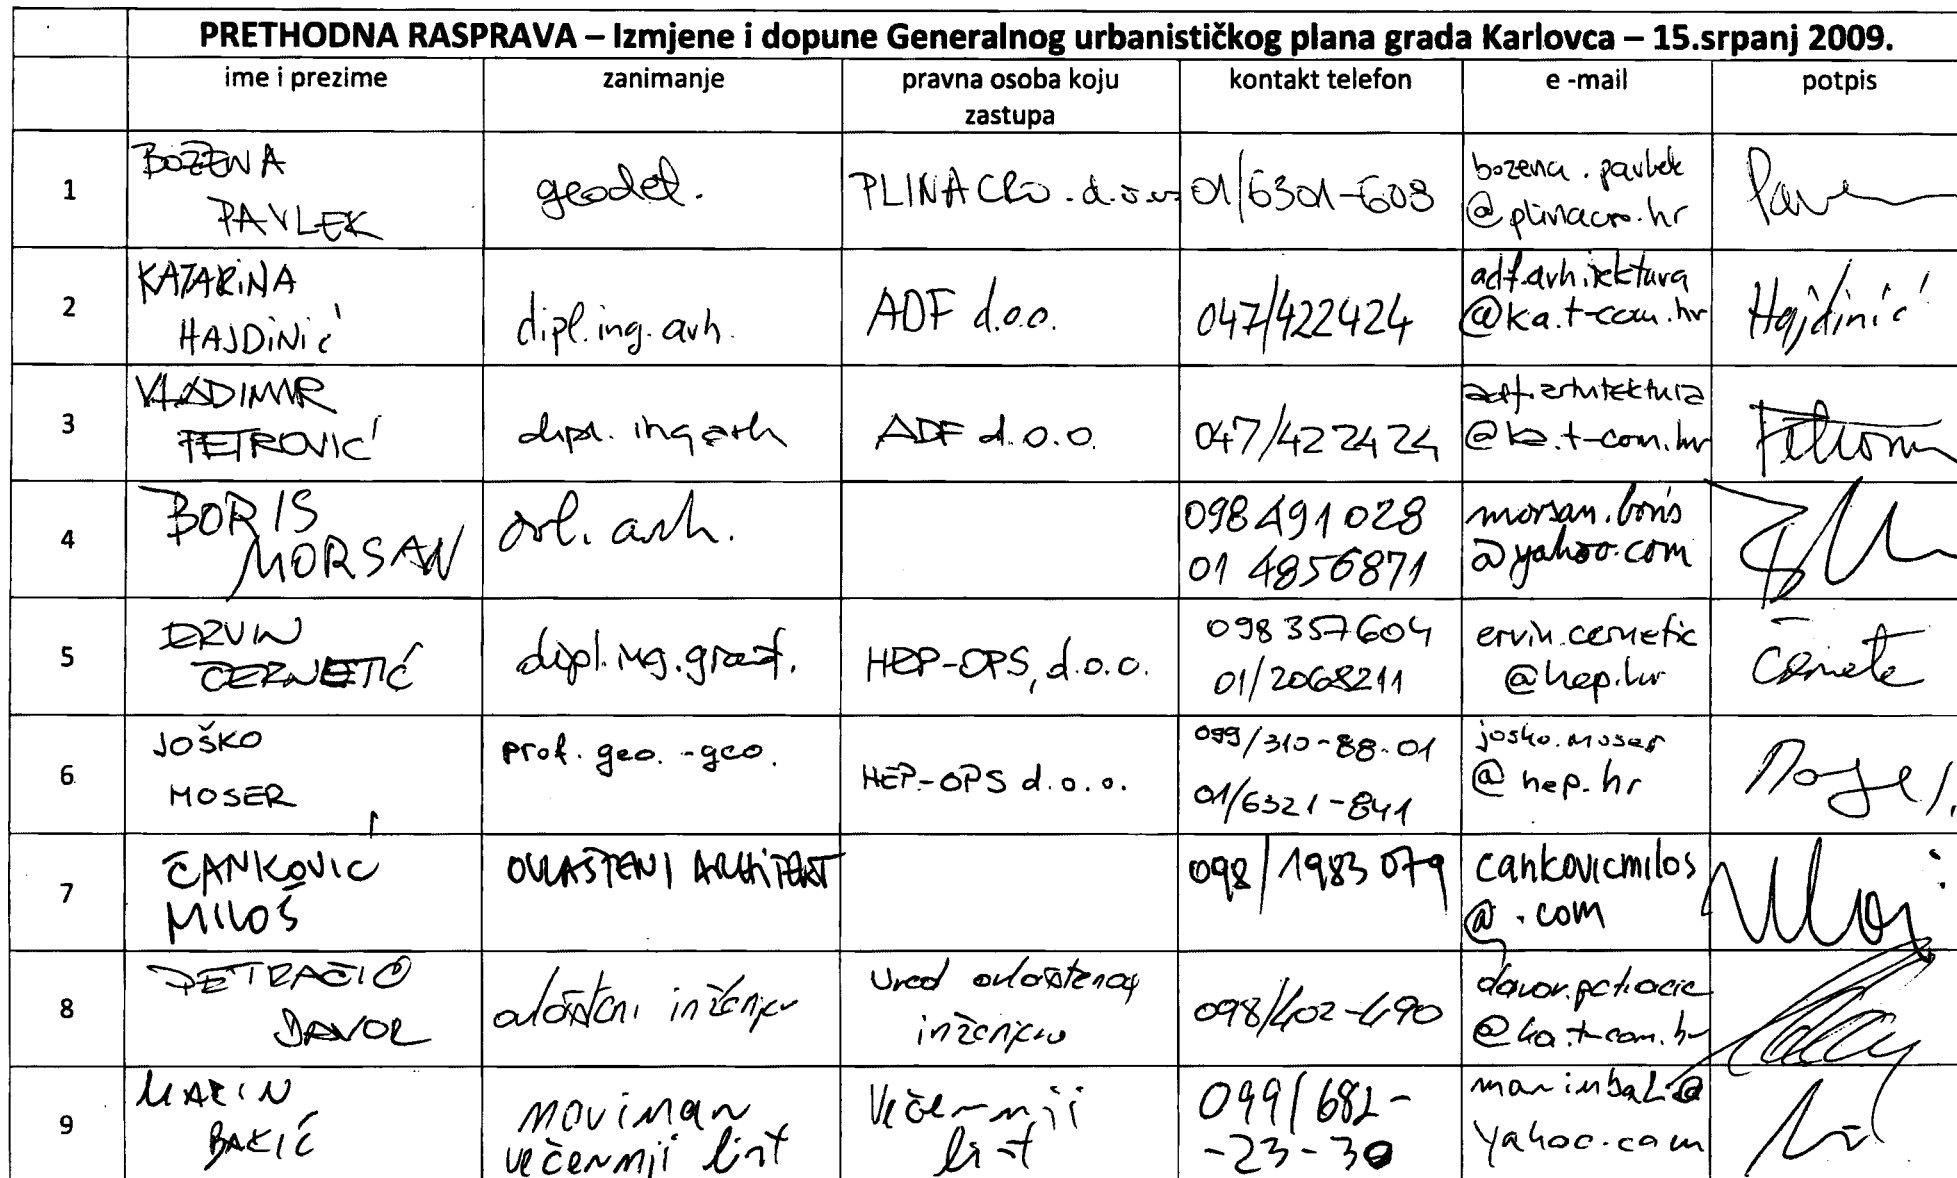 PRETHODNA RASPRAVA – Izmjene i dopune Generalnog urbanističkog plana grada Karlovca – 15.srpanj 2009.
ime i prezime zanimanje pravna osoba koju zastupa kontakt telefon e -mail potpis
1 BOŽENA PAVLEK geodet. PLINACRO d.o.o. 01/6301-603 bozena.pavlek@plinacro.hr
2 KATARINA HAJDINIĆ dipl.ing.arh. ADF d.o.o. 047/422424 adf.arhitektura@ka.t-com.hr Hajdinić
3 VLADIMIR PETROVIĆ dipl. ing arh ADF d.o.o. 047/422424 adf.arhitektura@ka.t-com.hr
4 BORIS MORSAN ovl. arh. 098 491 028 01 4856871 morsan.boris@yahoo.com
5 ERVIN ČERNETIĆ dipl.ing.građ. HEP-OPS, d.o.o. 098 357604 01/2068211 ervin.cernetic@hep.hr
6 JOŠKO MOSER prof. geo. -geo. HEP-OPS d.o.o. 099/310-88-01 01/6321-841 josko.moser@hep.hr Moser
7 ČANKOVIĆ MILOŠ OVLAŠTENI ARHITEKT 098/1983 079 cankovicmilos@.com
8 PETRAČIĆ DAVOR ovlašteni inženjer Ured ovlaštenog inženjera 098/402-490 davor.petracic@ka.t-com.hr
9 MARIN BAKIĆ večernji list Večernji list 099/682-23-30 yahoo.com